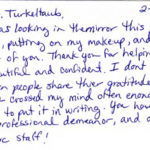 . Turkeltaub, 2-
as looking in themirror this
, putting on my makeup, and
of you. Thank you for helpin
utiful and confident. I don't
n people share thier gratitude
crossed my mind often enou
to put it in writing. You hav
professional demeanor, and o
ic staff!